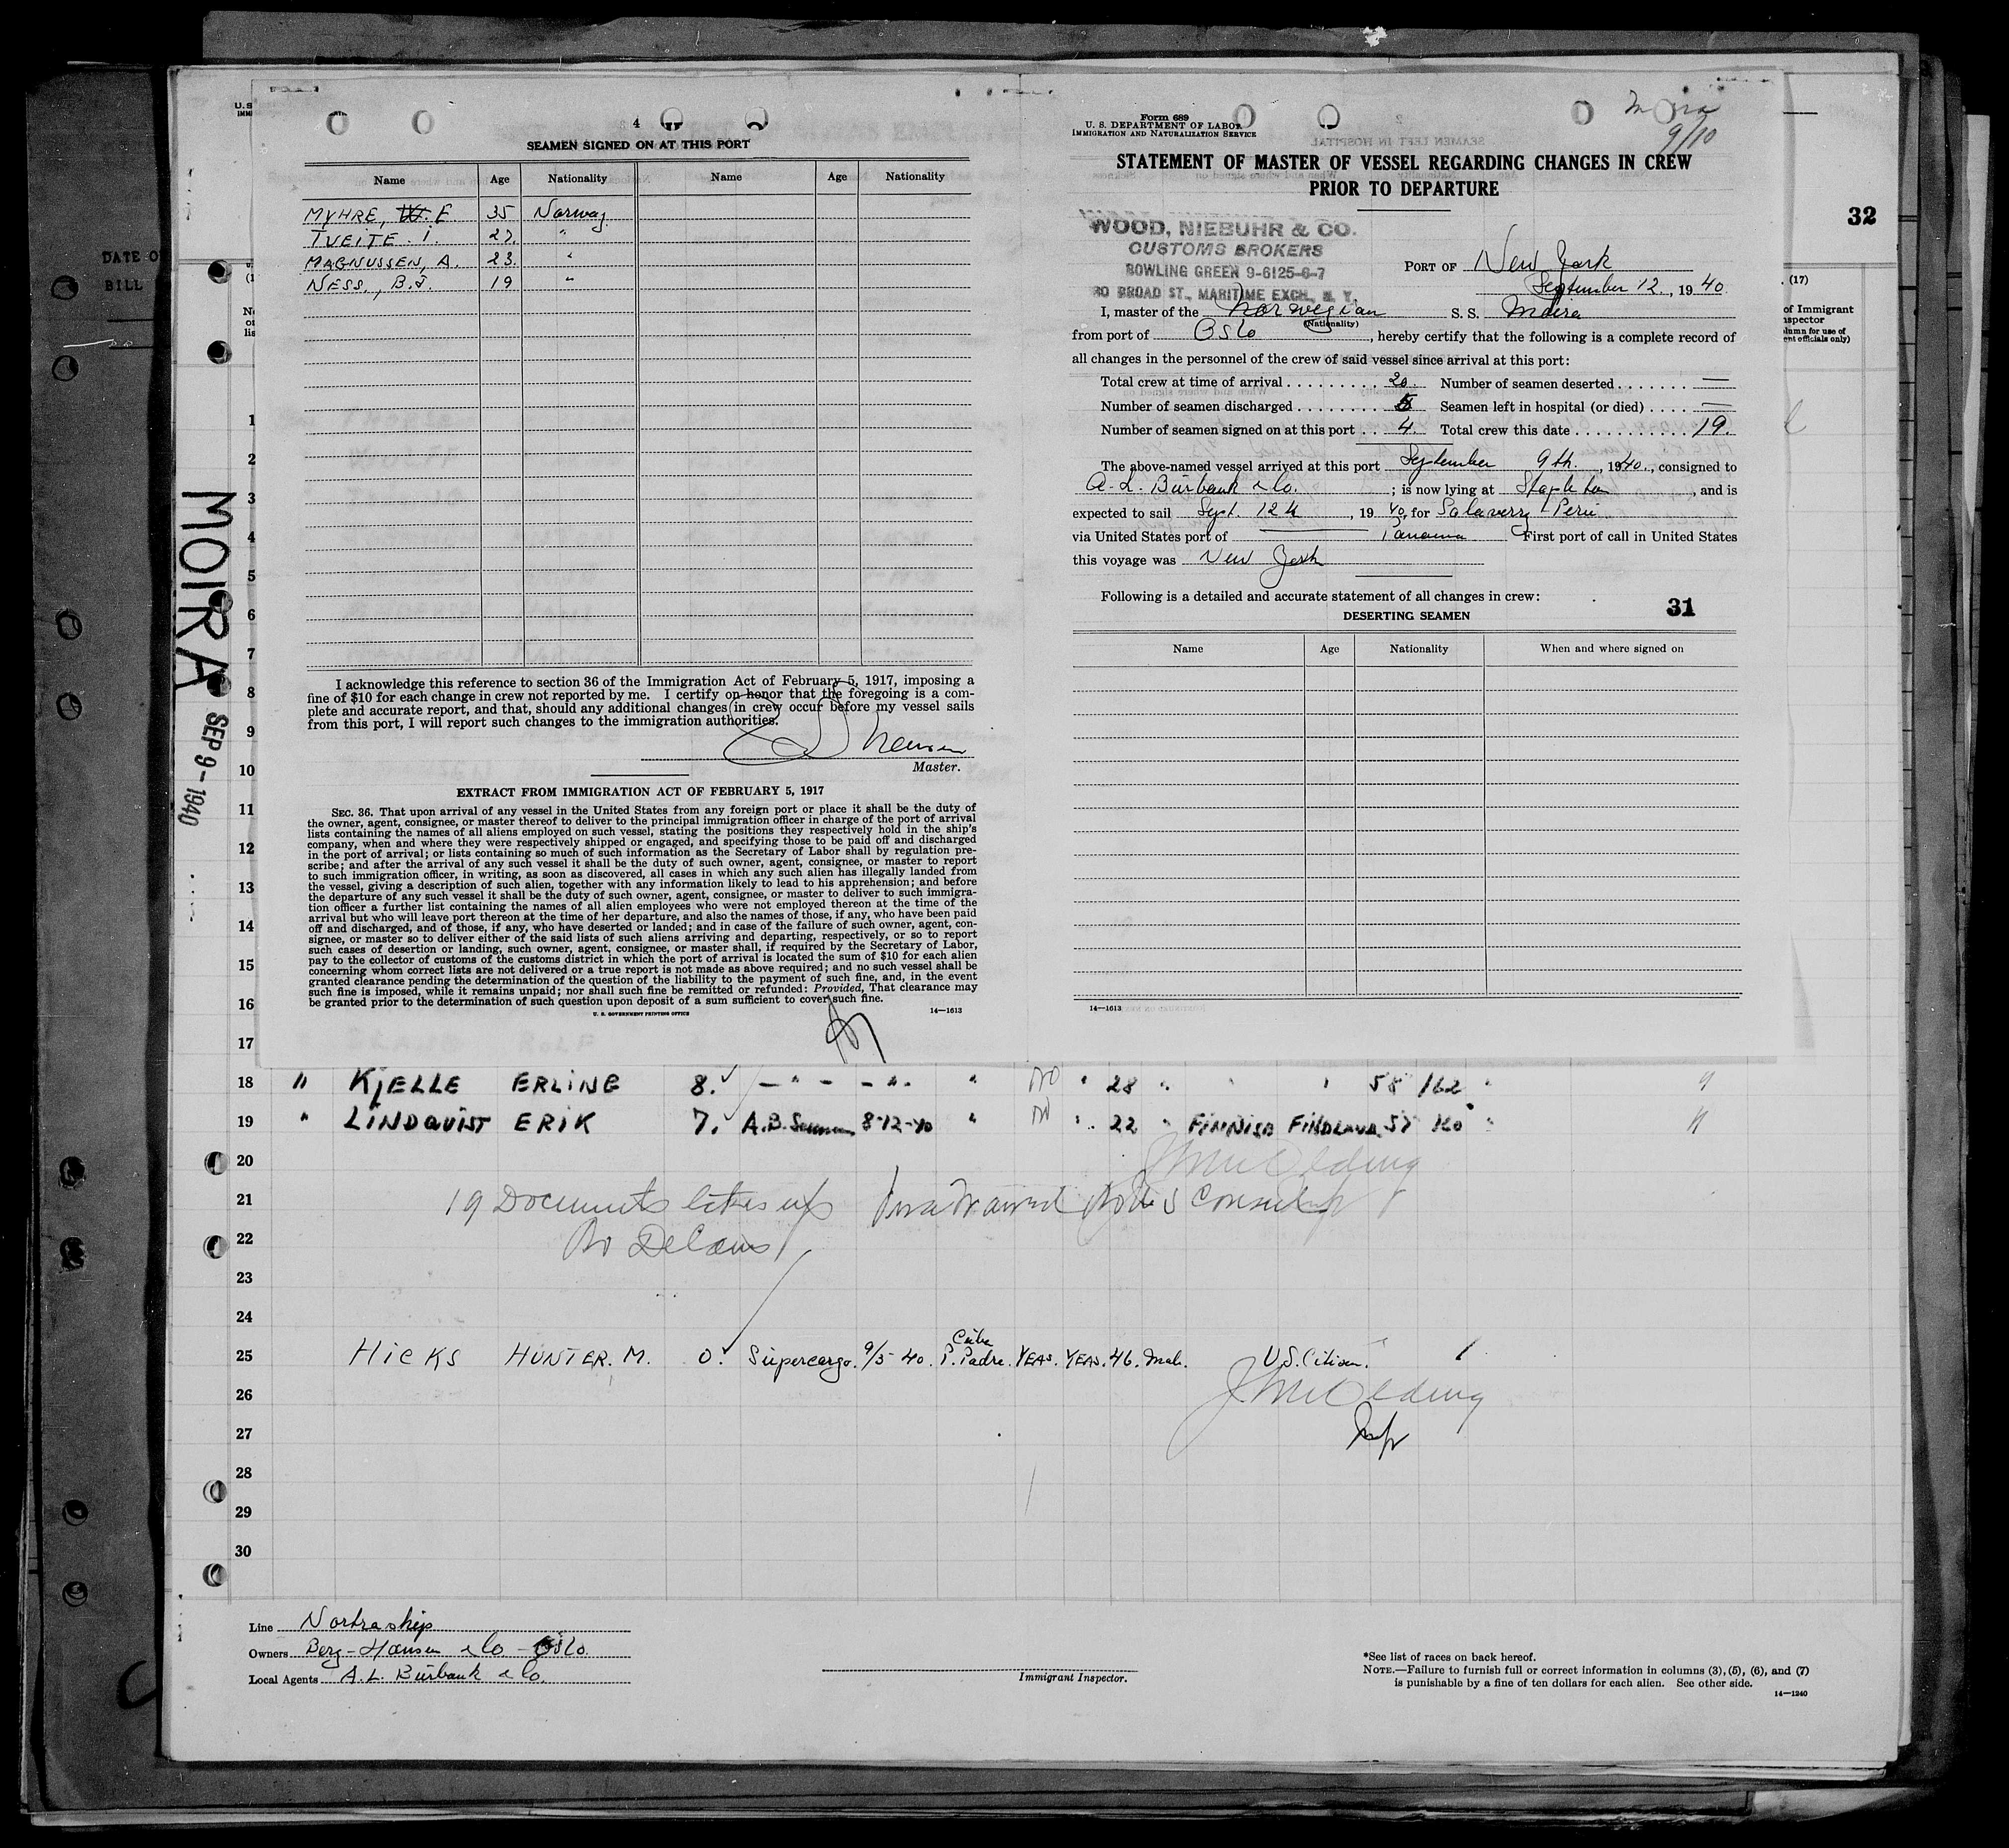 4
SEAMEN SIGNED ON AT THIS PORT
Name Age Nationality Name Age Nationality
MYHRE, W. E 35 Norway
TVEITE. I. 27. "
MAGNUSSEN, A. 23. "
NESS., B.J. 19 "
I acknowledge this reference to section 36 of the Immigration Act of February 5, 1917, imposing a
fine of $10 for each change in crew not reported by me. I certify on honor that the foregoing is a com-
plete and accurate report, and that, should any additional changes in crew occur before my vessel sails
from this port, I will report such changes to the immigration authorities.
Master.
EXTRACT FROM IMMIGRATION ACT OF FEBRUARY 5, 1917
SEC. 36. That upon arrival of any vessel in the United States from any foreign port or place it shall be the duty of
the owner, agent, consignee, or master thereof to deliver to the principal immigration officer in charge of the port of arrival
lists containing the names of all aliens employed on such vessel, stating the positions they respectively hold in the ship's
company, when and where they were respectively shipped or engaged, and specifying those to be paid off and discharged
in the port of arrival; or lists containing so much of such information as the Secretary of Labor shall by regulation pre-
scribe; and after the arrival of any such vessel it shall be the duty of such owner, agent, consignee, or master to report
to such immigration officer, in writing, as soon as discovered, all cases in which any such alien has illegally landed from
the vessel, giving a description of such alien, together with any information likely to lead to his apprehension; and before
the departure of any such vessel it shall be the duty of such owner, agent, consignee, or master to deliver to such immigra-
tion officer a further list containing the names of all alien employees who were not employed thereon at the time of the
arrival but who will leave port thereon at the time of her departure, and also the names of those, if any, who have been paid
off and discharged, and of those, if any, who have deserted or landed; and in case of the failure of such owner, agent, con-
signee, or master so to deliver either of the said lists of such aliens arriving and departing, respectively, or so to report
such cases of desertion or landing, such owner, agent, consignee, or master shall, if required by the Secretary of Labor,
pay to the collector of customs of the customs district in which the port of arrival is located the sum of $10 for each alien
concerning whom correct lists are not delivered or a true report is not made as above required; and no such vessel shall be
granted clearance pending the determination of the question of the liability to the payment of such fine, and, in the event
such fine is imposed, while it remains unpaid; nor shall such fine be remitted or refunded: Provided, That clearance may
be granted prior to the determination of such question upon deposit of a sum sufficient to cover such fine.
U. S. GOVERNMENT PRINTING OFFICE 14—1613
Form 689
U. S. DEPARTMENT OF LABOR
IMMIGRATION AND NATURALIZATION SERVICE
Moira
9/10
STATEMENT OF MASTER OF VESSEL REGARDING CHANGES IN CREW
PRIOR TO DEPARTURE
WOOD, NIEBUHR & CO.
CUSTOMS BROKERS
BOWLING GREEN 9-6125-6-7
80 BROAD ST., MARITIME EXCH., N. Y.
PORT OF New York
September 12., 1940
I, master of the Norwegian S. S. Moira
(Nationality)
from port of Oslo, hereby certify that the following is a complete record of
all changes in the personnel of the crew of said vessel since arrival at this port:
Total crew at time of arrival . . . . . . . . . 20. Number of seamen deserted . . . . . . . —
Number of seamen discharged . . . . . . . . 5 Seamen left in hospital (or died) . . . . —
Number of seamen signed on at this port . . 4. Total crew this date . . . . . . . . . . . 19.
The above-named vessel arrived at this port September 9th., 1940., consigned to
A. L. Burbank & Co. ; is now lying at Stapleton, and is
expected to sail Sept. 12th, 1940, for Salaverry Peru
via United States port of —— Panama First port of call in United States
this voyage was New York
Following is a detailed and accurate statement of all changes in crew:
31
DESERTING SEAMEN
Name Age Nationality When and where signed on
14—1613
32
(17)
of Immigrant
DATE O
BILL
MOIRA SEP 9-1940
1
2
3
4
5
6
7
8
9
10
11
12
13
14
15
16
17
18 " KJELLE ERLING 8. — " — — " . " NO " 28 " " " 58 162 "
19 " LINDQUIST ERIK 7. A.B. Seaman 8-12-40 " " 22 " FINNISH FINDLAND 5
20
21 19 Documents
22 No
23
24
25 HICKS HUNTER. M. 0. Supercargo. 9/5-40. Cuba P. Padre. YEAS. YEAS. 46. Male. U.S. Citizen.
26
27 Insp
28
29
30
Line Nortraship
Owners Berg-Hansen & Co - Oslo.
Local Agents A.L. Burbank & Co.
Immigrant Inspector.
*See list of races on back hereof.
NOTE.—Failure to furnish full or correct information in columns (3), (5), (6), and (7)
is punishable by a fine of ten dollars for each alien. See other side.
14—1240